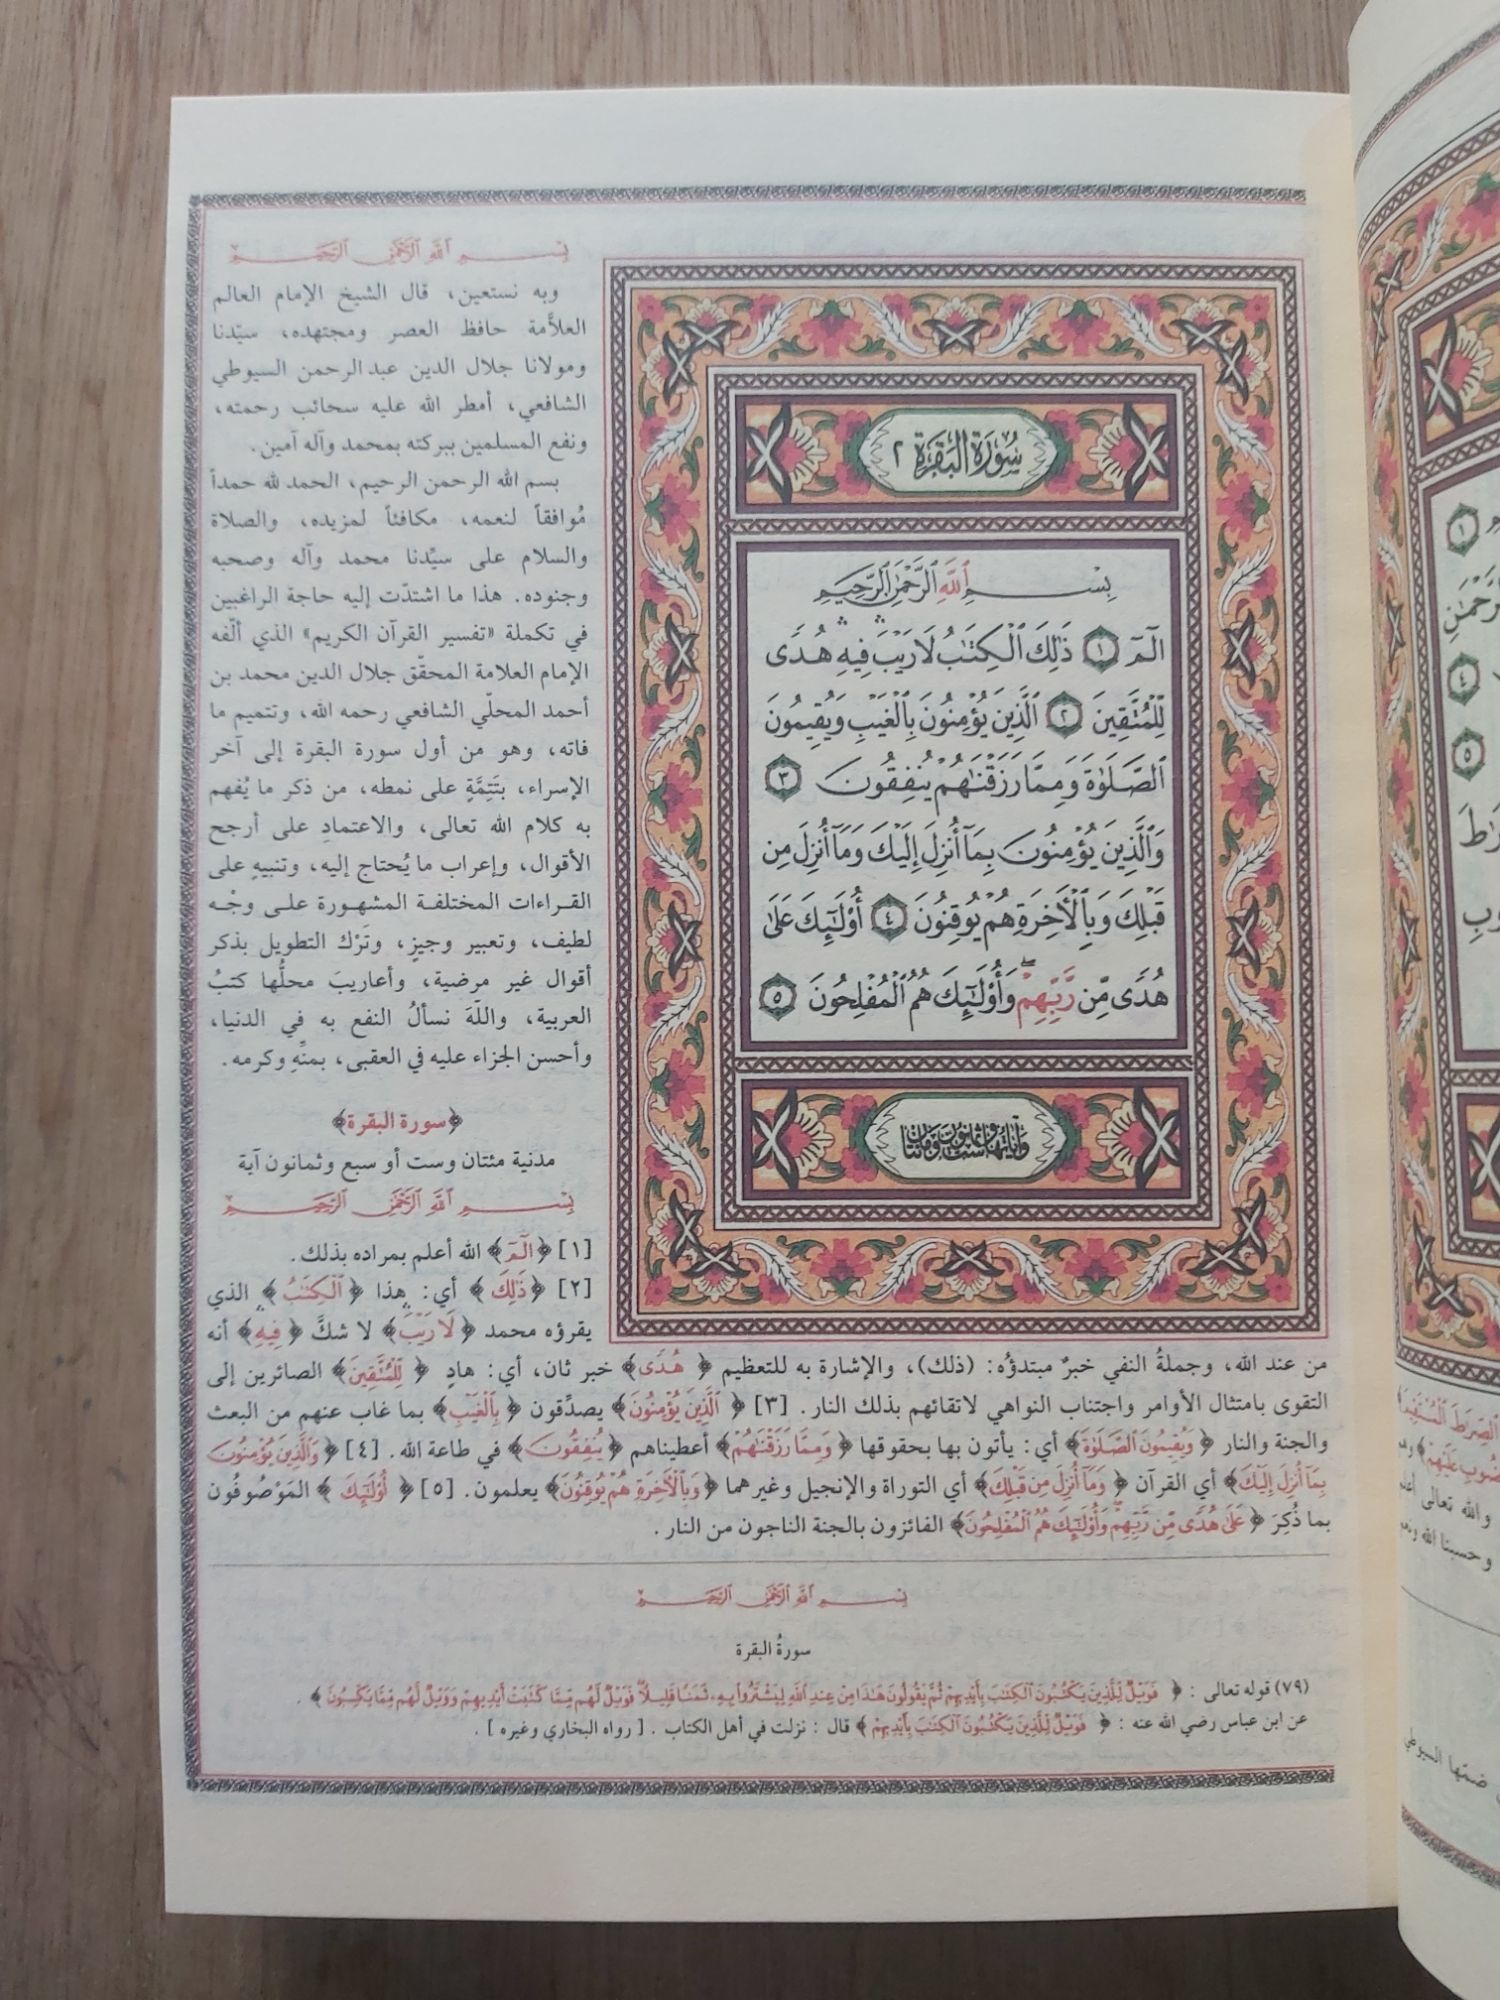 بِسْمِ ٱللَّهِ ٱلرَّحْمَٰنِ ٱلرَّحِيمِ
وبه نستعين، قال الشيخ الإمام العالم
العلاَّمة حافظ العصر ومجتهده، سيّدنا
ومولانا جلال الدين عبد الرحمن السيوطي
الشافعي، أمطر الله عليه سحائب رحمته،
ونفع المسلمين ببركته بمحمد وآله آمين.
بسم الله الرحمن الرحيم، الحمد لله حمداً
مُوافقاً لنعمه، مكافئاً لمزيده، والصلاة
والسلام على سيِّدنا محمد وآله وصحبه
وجنوده. هذا ما اشتدّت إليه حاجة الراغبين
في تكملة «تفسير القرآن الكريم» الذي ألّفه
الإمام العلامة المحقّق جلال الدين محمد بن
أحمد المحلّي الشافعي رحمه الله، وتتميم ما
فاته، وهو من أول سورة البقرة إلى آخر
الإسراء، بتَتِمَّةٍ على نمطه، من ذكر ما يُفهم
به كلام الله تعالى، والاعتمادِ على أرجح
الأقوال، وإعراب ما يُحتاج إليه، وتنبيهٍ على
القراءات المختلفة المشهورة على وجْه
لطيف، وتعبير وجيزٍ، وتَرْك التطويل بذكر
أقوال غير مرضية، وأعاريبَ محلُّها كتبُ
العربية، واللّهَ نسألُ النفع به في الدنيا،
وأحسن الجزاء عليه في العقبى، بمنِّهِ وكرمه.
﴿سورة البقرة﴾
مدنية مئتان وست أو سبع وثمانون آية
بِسْمِ ٱللَّهِ ٱلرَّحْمَٰنِ ٱلرَّحِيمِ
[١] ﴿الٓمٓ﴾ الله أعلم بمراده بذلك.
[٢] ﴿ذَٰلِكَ﴾ أي: هذا ﴿ٱلْكِتَٰبُ﴾ الذي
يقرؤه محمد ﴿لَا رَيْبَ﴾ لا شكَّ ﴿فِيهِ﴾ أنه
سُورَةُ البَقَرَةِ ٢
بِسْمِ ٱللَّهِ ٱلرَّحْمَٰنِ ٱلرَّحِيمِ
الٓمٓ ١ ذَٰلِكَ ٱلْكِتَٰبُ لَا رَيْبَ ۛ فِيهِ ۛ هُدًى
لِّلْمُتَّقِينَ ٢ ٱلَّذِينَ يُؤْمِنُونَ بِٱلْغَيْبِ وَيُقِيمُونَ
ٱلصَّلَوٰةَ وَمِمَّا رَزَقْنَٰهُمْ يُنفِقُونَ ٣
وَٱلَّذِينَ يُؤْمِنُونَ بِمَآ أُنزِلَ إِلَيْكَ وَمَآ أُنزِلَ مِن
قَبْلِكَ وَبِٱلْأَخِرَةِ هُمْ يُوقِنُونَ ٤ أُوْلَٰٓئِكَ عَلَىٰ
هُدًى مِّن رَّبِّهِمْ ۖ وَأُوْلَٰٓئِكَ هُمُ ٱلْمُفْلِحُونَ ٥
وَآيَاتُهَا سِتٌّ وَثَمَانُونَ وَمِائَتَانِ
من عند الله، وجملةُ النفي خبرٌ مبتدؤُه: (ذلك)، والإشارة به للتعظيم ﴿هُدًى﴾ خبر ثان، أي: هادٍ ﴿لِّلْمُتَّقِينَ﴾ الصائرين إلى
التقوى بامتثال الأوامر واجتناب النواهي لاتقائهم بذلك النار. [٣] ﴿ٱلَّذِينَ يُؤْمِنُونَ﴾ يصدِّقون ﴿بِٱلْغَيْبِ﴾ بما غاب عنهم من البعث
والجنة والنار ﴿وَيُقِيمُونَ ٱلصَّلَوٰةَ﴾ أي: يأتون بها بحقوقها ﴿وَمِمَّا رَزَقْنَٰهُمْ﴾ أعطيناهم ﴿يُنفِقُونَ﴾ في طاعة الله. [٤] ﴿وَٱلَّذِينَ يُؤْمِنُونَ
بِمَآ أُنزِلَ إِلَيْكَ﴾ أي القرآن ﴿وَمَآ أُنزِلَ مِن قَبْلِكَ﴾ أي التوراة والإنجيل وغيرهما ﴿وَبِٱلْأَخِرَةِ هُمْ يُوقِنُونَ﴾ يعلمون. [٥] ﴿أُوْلَٰٓئِكَ﴾ المَوْصُوفُون
بما ذُكِرَ ﴿عَلَىٰ هُدًى مِّن رَّبِّهِمْ ۖ وَأُوْلَٰٓئِكَ هُمُ ٱلْمُفْلِحُونَ﴾ الفائزون بالجنة الناجون من النار.
بِسْمِ ٱللَّهِ ٱلرَّحْمَٰنِ ٱلرَّحِيمِ
سورةُ البقرة
(٧٩) قوله تعالى : ﴿فَوَيْلٌ لِّلَّذِينَ يَكْتُبُونَ ٱلْكِتَٰبَ بِأَيْدِيهِمْ ثُمَّ يَقُولُونَ هَٰذَا مِنْ عِندِ ٱللَّهِ لِيَشْتَرُوا۟ بِهِۦ ثَمَنًا قَلِيلًا ۖ فَوَيْلٌ لَّهُم مِّمَّا كَتَبَتْ أَيْدِيهِمْ وَوَيْلٌ لَّهُم مِّمَّا يَكْسِبُونَ﴾ .
عن ابن عباس رضي الله عنه : ﴿فَوَيْلٌ لِّلَّذِينَ يَكْتُبُونَ ٱلْكِتَٰبَ بِأَيْدِيهِمْ﴾ قال : نزلت في أهل الكتاب . [ رواه البخاري وغيره ] .